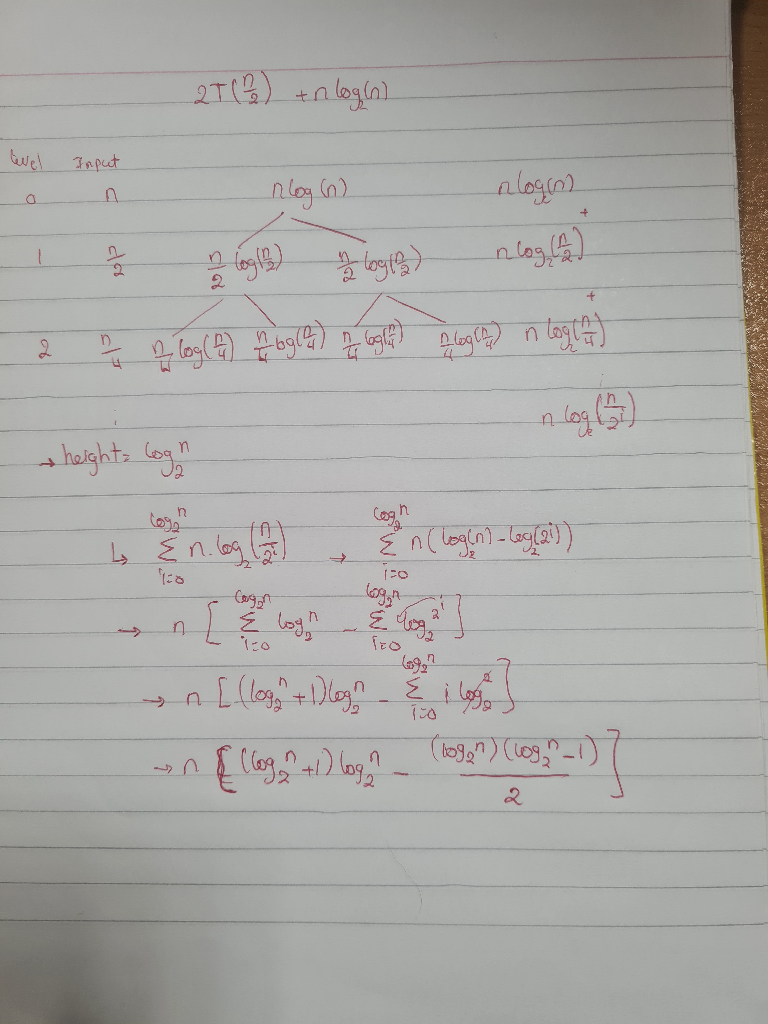 2T(n/2) + n log₂(n)
level Input
0 n n log(n) n log₂(n)
+
1 n/2 n/2 log(n/2) n/2 log(n/2) n log₂(n/2)
+
2 n/4 n/4 log(n/4) n/4 log(n/4) n/4 log(n/4) n/4 log(n/4) n log₂(n/4)
n log₂(n/2^i)
→ height = log₂ n
↳ Σ_{i=0}^{log₂ n} n. log₂(n/2^i) → Σ_{i=0}^{log₂ n} n(log₂(n) - log₂(2^i))
→ n [ Σ_{i=0}^{log₂ n} log₂ n - Σ_{i=0}^{log₂ n} log₂ 2^i ]
→ n [(log₂ n + 1) log₂ n - Σ_{i=0}^{log₂ n} i log₂ 2]
→ n [(log₂ n + 1) log₂ n - (log₂ n)(log₂ n - 1)/2]